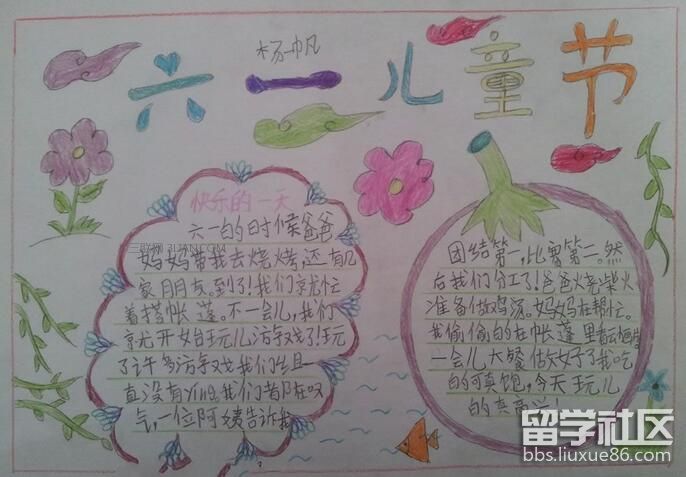 杨帆
六一儿童节
快乐的一天
六一的时候爸爸
妈妈带我去烧烤,还有几
家朋友。到了!我们就忙
着搭帐篷。不一会儿,我们
就开始玩儿游戏了!玩
了许多游戏我们组一
直没有yíng我们都在叹
气,一位阿姨告诉我
团结第一,比赛第二。然
后我们分工了!爸爸火烧柴火
准备做鸡汤。妈妈在帮忙。
我偷偷的在帐篷里看
一会儿大餐做好了我吃
的可真饱,今天玩儿
的真高兴!
三联网 3LIAN.COM
留学社区
bbs.liuxue86.com